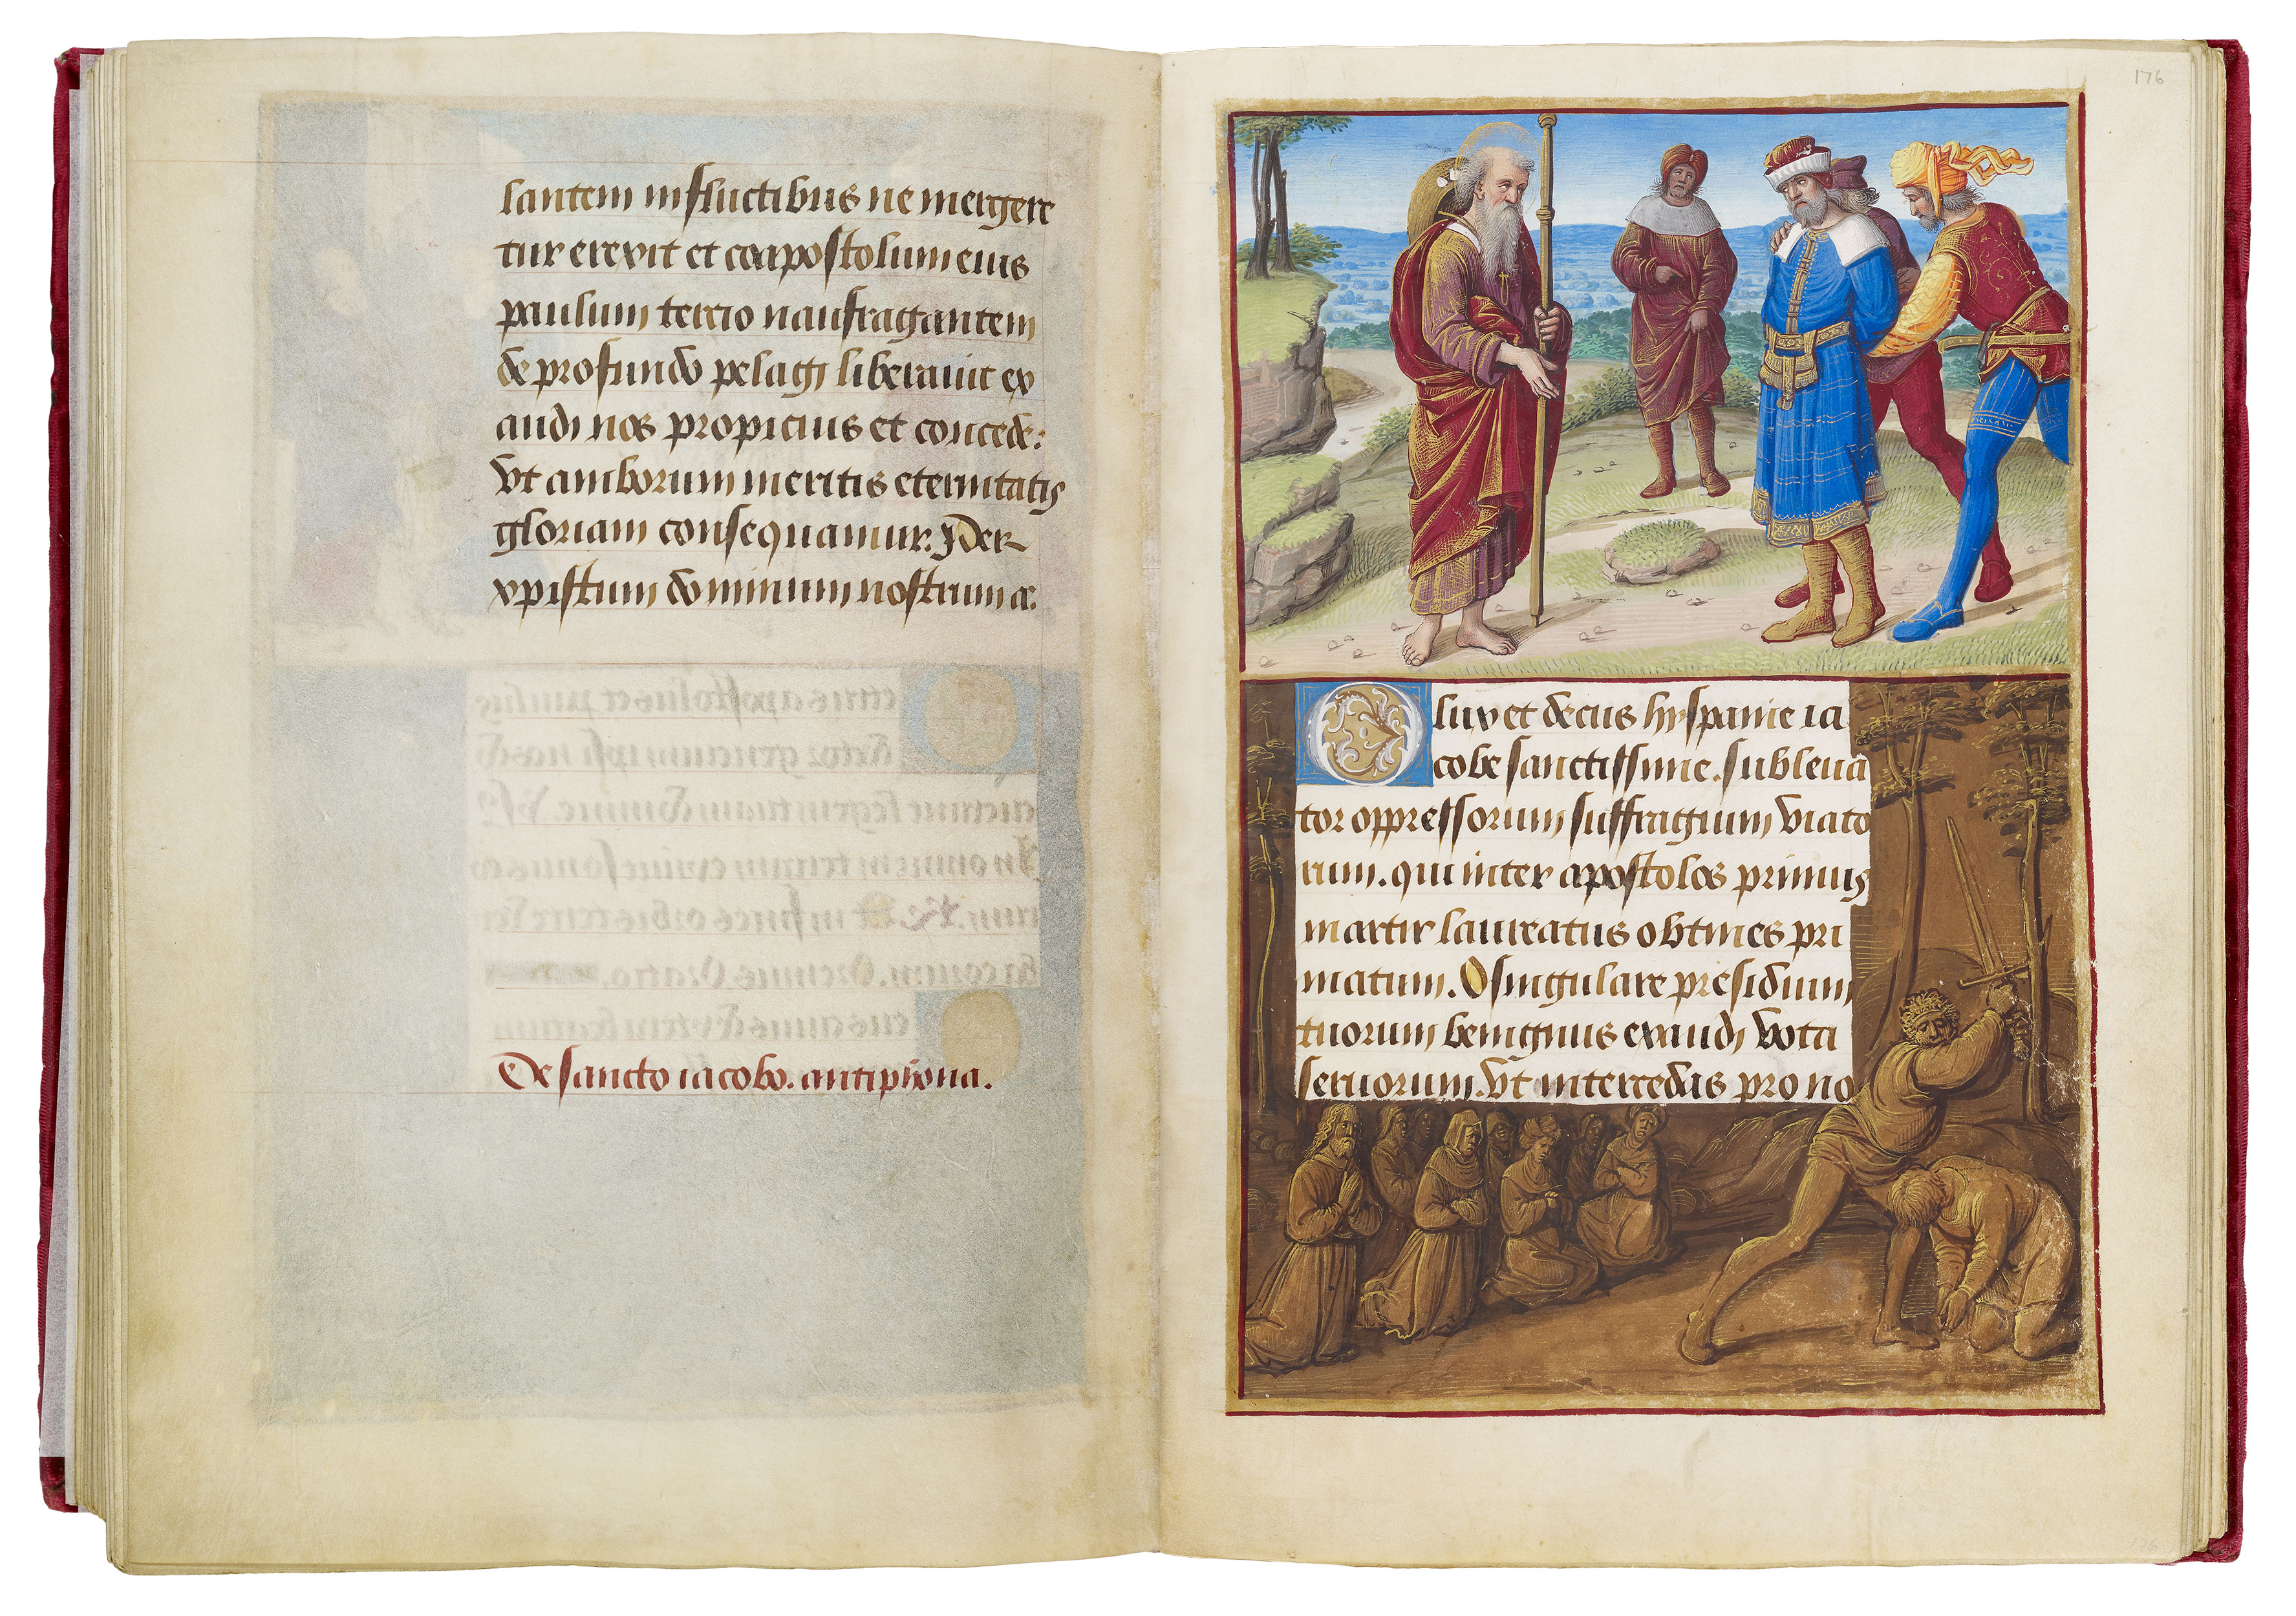 lantem in fluctibus ne mergere
tur erexit et coapostolum eius
paulum tercio naufragantem
de profundo pelagi liberauit ex
audi nos propicius et concede:
Vt amborum meritis eternitatis
gloriam consequamur. Per
xpistum dominum nostrum a:
De sancto iacobo. antiphona.
176
O lux et decus hyspanie ia
cobe sanctissime. subleua
tor oppressorum suffragium viato
rum. qui inter apostolos primus
martir laureatus obtines pri
matum. O singulare presidium
tuorum benignus exaudi vota
seruorum. Vt intercedas pro no